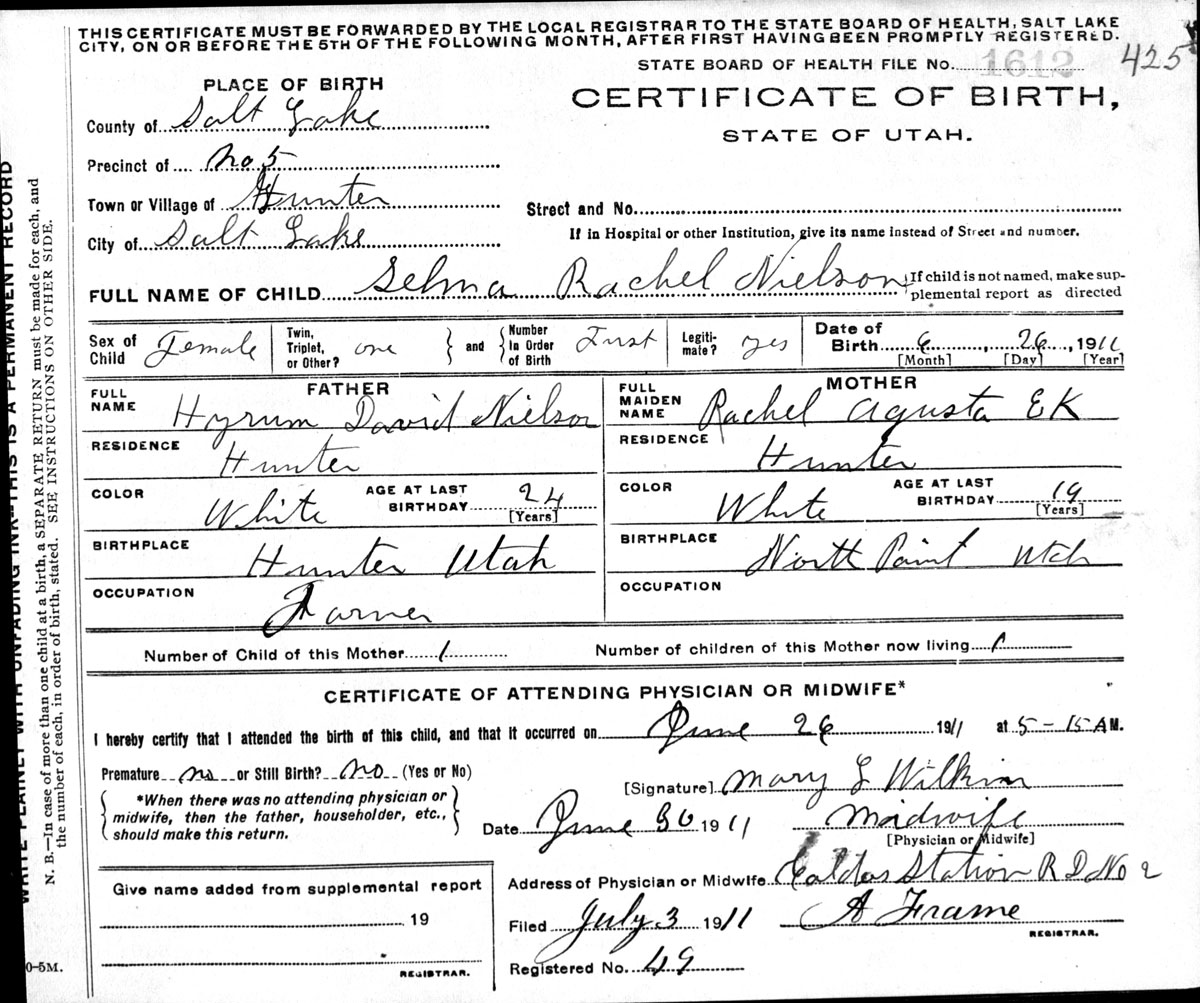 THIS CERTIFICATE MUST BE FORWARDED BY THE LOCAL REGISTRAR TO THE STATE BOARD OF HEALTH, SALT LAKE
CITY, ON OR BEFORE THE 5TH OF THE FOLLOWING MONTH, AFTER FIRST HAVING BEEN PROMPTLY REGISTERED.
STATE BOARD OF HEALTH FILE No. 1612 425
PLACE OF BIRTH
CERTIFICATE OF BIRTH,
STATE OF UTAH.
County of Salt Lake
Precinct of No 5
Town or Village of Hunter
Street and No.
City of Salt Lake
If in Hospital or other Institution, give its name instead of Street and number.
FULL NAME OF CHILD Selma Rachel Nielson
If child is not named, make sup-
plemental report as directed
Sex of Child Female
Twin, Triplet, or Other? one
and
Number in Order of Birth First
Legiti-mate? yes
Date of Birth 6, 26, 1911
[Month] [Day] [Year]
FATHER
FULL NAME Hyrum David Nielson
RESIDENCE Hunter
COLOR White AGE AT LAST BIRTHDAY 24
[Years]
BIRTHPLACE Hunter Utah
OCCUPATION Farmer
MOTHER
FULL MAIDEN NAME Rachel Agusta EK
RESIDENCE Hunter
COLOR White AGE AT LAST BIRTHDAY 19
[Years]
BIRTHPLACE North Point Utah
OCCUPATION
Number of Child of this Mother 1 Number of children of this Mother now living 1
CERTIFICATE OF ATTENDING PHYSICIAN OR MIDWIFE*
I hereby certify that I attended the birth of this child, and that it occurred on June 26 1911 at 5-15 A M.
Premature no or Still Birth? No (Yes or No)
[Signature] Mary L Wilkin
*When there was no attending physician or
midwife, then the father, householder, etc.,
should make this return.
Date June 30 1911 Midwife
[Physician or Midwife]
Give name added from supplemental report
19
REGISTRAR.
Address of Physician or Midwife Station R D No 2
Filed July 3 1911 A Frame
REGISTRAR.
Registered No. 49
WRITE PLAINLY WITH UNFADING INK—THIS IS A PERMANENT RECORD
N. B.—In case of more than one child at a birth, a SEPARATE RETURN must be made for each, and
the number of each, in order of birth, stated. SEE INSTRUCTIONS ON OTHER SIDE.
0-5M.